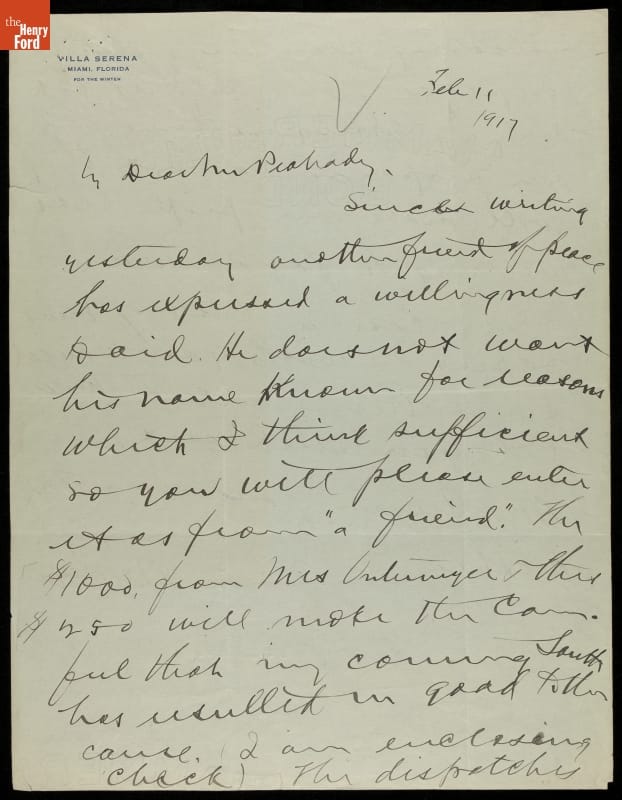 the
Henry
Ford
VILLA SERENA
MIAMI, FLORIDA
FOR THE WINTER
Feb 11
1917
My Dear Mr Peabody,
Since writing
yesterday another friend of peace
has expressed a willingness
to aid. He does not want
his name known for reasons
which I think sufficient
so you will please enter
it as from "a friend". The
$1000, from Mrs Untermyer & this
$250 will make the Com.
feel that my coming South
has resulted in good to the
cause. (I am enclosing
check) The dispatches